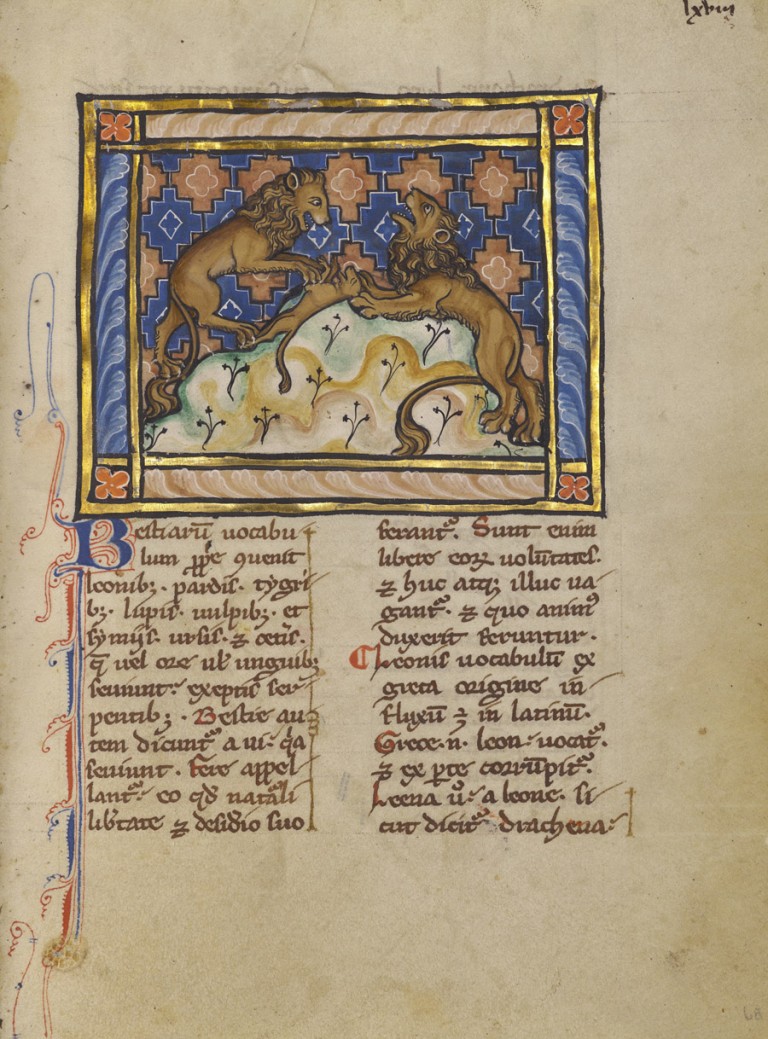 lxviii
Bestiarū uocabu-
lum ꝓp̱e ꝯuenit
leonibꝫ. pardis. tygri-
bꝫ. lupis. uulpibꝫ. et
symijs. ursis. ⁊ cet̾is.
q̄ uel ore ul̾ unguibꝫ
seuiunt: exeptis ser-
pentibꝫ. Bestie au-
tem dicuntᷣ a ui: qͣa
seuiunt. Fere appel-
lantᷣ: eo qd̾ natᷣali
lib̾tate ⁊ desid̾io suo
ferantᷣ. Sunt enim
libere eoꝝ uolūtates.
⁊ huc atqꝫ illuc ua-
gantᷣ. ⁊ quo animꝰ
duxerit feruntur.
Leonis uocabulū ex
greca origine in-
flexū ē in latinū.
Grece .n. leon uocatᷣ.
⁊ ex ꝑte corrūpitᷣ.
Leena u̾o a leone. si-
cut dicitᷣ drachena
68